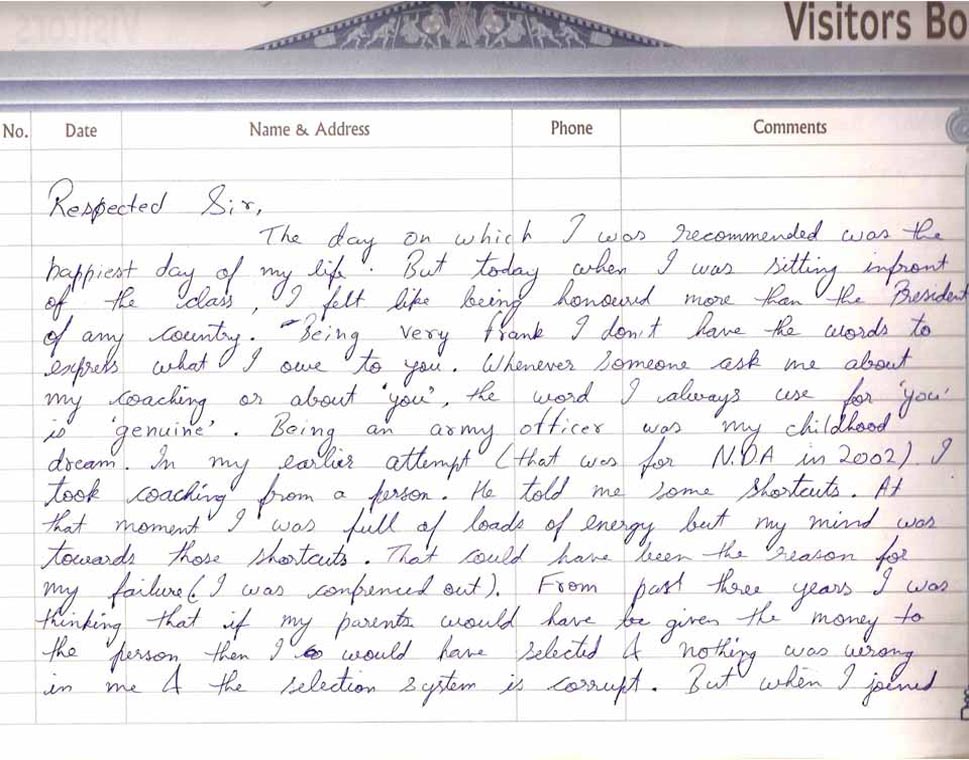 Visitors Bo
No. Date Name & Address Phone Comments
Respected Sir,
The day on which I was recommended was the
happiest day of my life. But today when I was sitting infront
of the class, I felt like being honoured more than the President
of any country. Being very frank I don't have the words to
express what I owe to you. Whenever someone ask me about
my coaching or about 'you', the word I always use for 'you'
is 'genuine'. Being an army officer was my childhood
dream. In my earlier attempt (that was for N.DA in 2002) I
took coaching from a person. He told me some shortcuts. At
that moment I was full of loads of energy but my mind was
towards those shortcuts. That could have been the reason for
my failure (I was conferenced out). From past three years I was
thinking that if my parents would have be given the money to
the person then I would have selected & nothing was wrong
in me & the selection system is corrupt. But when I joined